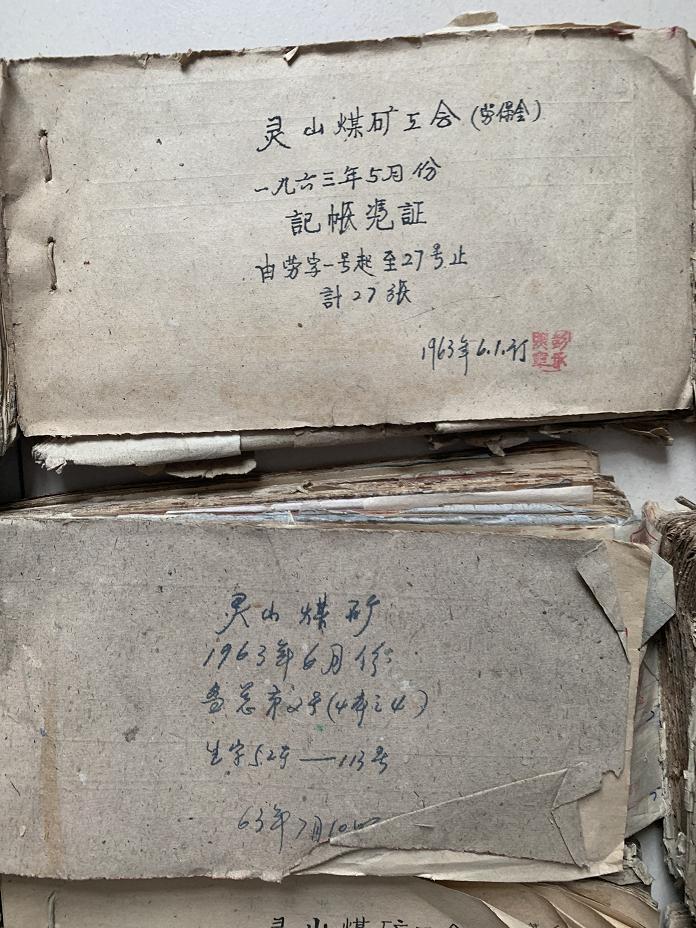 灵山煤矿工会(劳保金)
一九六三年5月份
記帐凭証
由劳字一号起至27号止
計27张
1963年6.1.订
灵山煤矿
1963年6月份
总第2号(4本之4)
生字52号——113号
63年7月10日
灵山煤矿工会